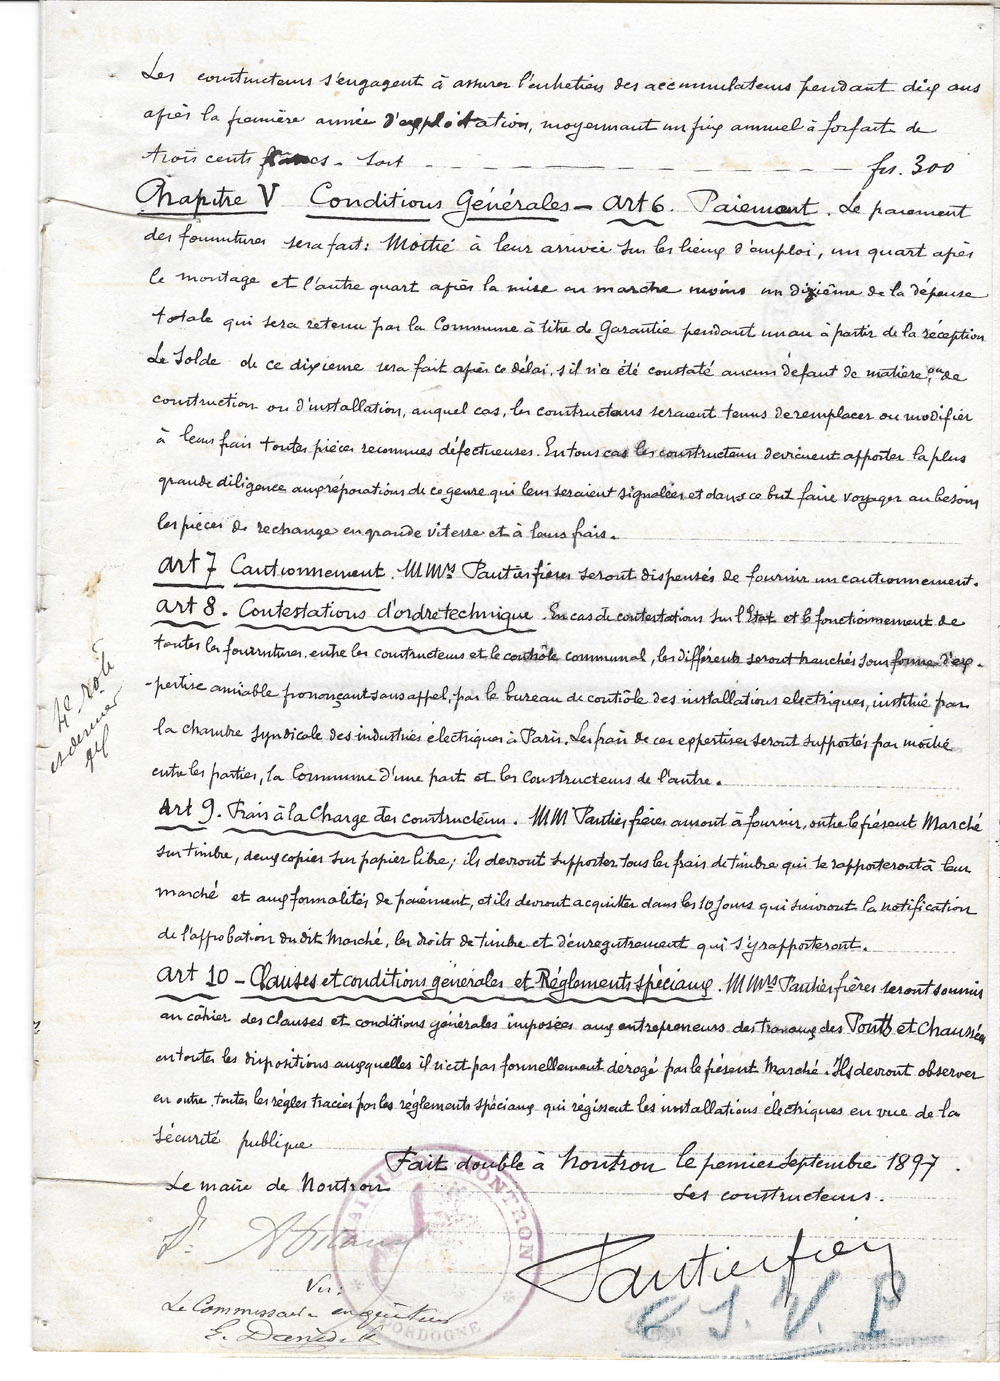 Les constructeurs s'engagent à assurer l'entretien des accumulateurs pendant dix ans
après la première année d'exploitation, moyennant un prix annuel à forfait de
trois cents francs - soit _ _ _ _ _ _ _ frs. 300
Chapitre V Conditions Générales - art 6. Paiement. Le paiement
des fournitures sera fait: Moitié à leur arrivée sur les lieux d'emploi, un quart après
le montage et l'autre quart après la mise en marche moins un dixième de la dépense
totale qui sera retenu par la Commune à titre de Garantie pendant un an à partir de la réception
Le Solde de ce dixième sera fait après ce délai, s'il n'a été constaté aucun défaut de matière, ou de
construction ou d'installation, auquel cas, les constructeurs seraient tenus de remplacer ou modifier
à leurs frais toutes pièces reconnues défectueuses. En tous cas les constructeurs devraient apporter la plus
grande diligence aux réparations de ce genre qui leur seraient signalées et dans ce but faire voyager au besoin
les pièces de rechange en grande vitesse et à leurs frais.
art 7 Cautionnement. MMrs Pautier frères seront dispensés de fournir un cautionnement.
art 8. Contestations d'ordre technique. En cas de contestations sur l'Etat et le fonctionnement de
toutes les fournitures entre les constructeurs et le contrôle communal, les différents seront tranchés sous forme d'ex-
-pertise amiable prononçant sans appel, par le bureau de contrôle des installations électriques, institué par
la chambre syndicale des industries électriques à Paris. Les frais de ces expertises seront supportés par moitié
entre les parties, la Commune d'une part et les Constructeurs de l'autre.
4e rôle
et dernier
art 9. Frais à la Charge des constructeurs. MM Pautier frères auront à fournir, outre le présent Marché
sur timbre, deux copies sur papier libre; ils devront supporter tous les frais de timbre qui se rapporteront à leur
marché et aux formalités de paiement, et ils devront acquitter dans les 10 jours qui suivront la notification
de l'approbation du dit Marché, les droits de timbre et d'enregistrement qui s'y rapporteront.
art 10 - Clauses et conditions générales et Réglements spéciaux. MMrs Pautier frères seront soumis
au cahier des clauses et conditions générales imposées aux entrepreneurs des travaux des Ponts et Chaussées
en toutes les dispositions auxquelles il n'est pas formellement dérogé par le présent Marché. Ils devront observer
en outre toutes les règles tracées par les réglements spéciaux qui régissent les installations électriques en vue de la
sécurité publique
Fait double à Nontron le premier septembre 1897.
Le maire de Nontron
Les constructeurs.
MAIRIE DE NONTRON
DORDOGNE
Pautier frères
Vu:
Le Commissaire enquêteur
T. S. V. P